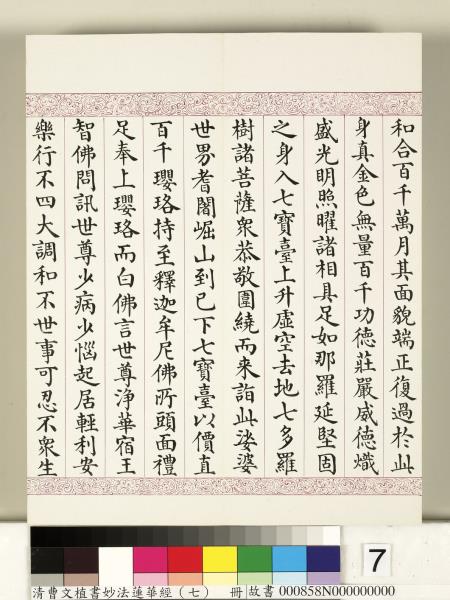 和合百千萬月其面貌端正復過於此
身真金色無量百千功德莊嚴威德熾
盛光明照曜諸相具足如那羅延堅固
之身入七寶臺上升虛空去地七多羅
樹諸菩薩眾恭敬圍繞而來詣此娑婆
世界耆闍崛山到已下七寶臺以價直
百千瓔珞持至釋迦牟尼佛所頭面禮
足奉上瓔珞而白佛言世尊淨華宿王
智佛問訊世尊少病少惱起居輕利安
樂行不四大調和不世事可忍不眾生
7
清曹文植書妙法蓮華經（七） 冊 故書 000858N000000000